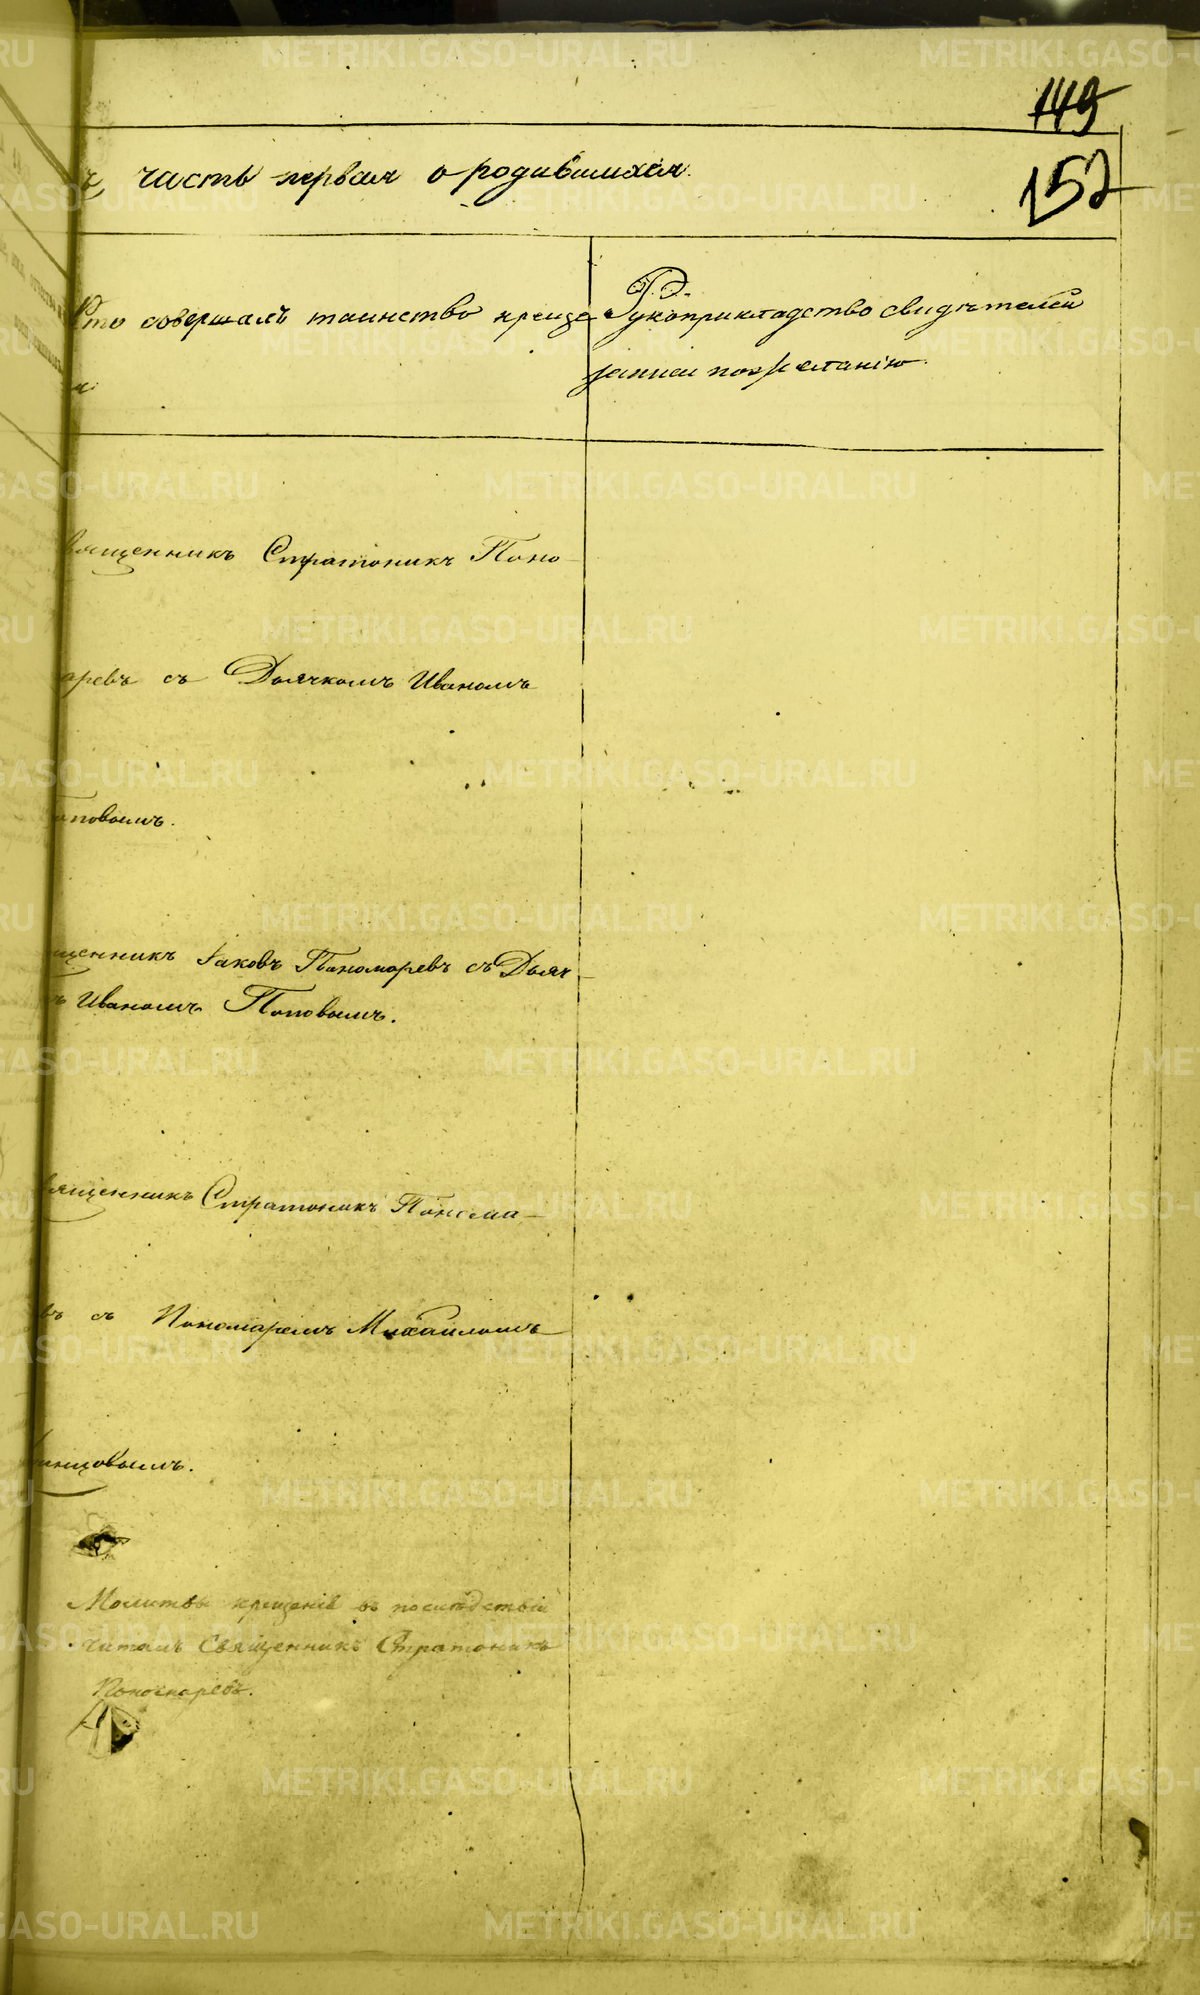 149
часть первая о родившихся.
152
Кто совершалъ таинство креще-
Рукоприкладство свидѣтелей
записи по желанію
священникъ Стратоникъ Поно-
аревъ съ Дьячкомъ Иваномъ
Поповымъ.
щенникъ Іаковъ Пономаревъ съ Дьяч-
ъ Иваномъ Поповымъ.
вященникъ Стратоникъ Понома-
въ съ Пономаремъ Михаиломъ
инцовымъ.
Молитвы крещенія въ послѣдствіи
читалъ Священникъ Стратоникъ
Пономаревъ.
METRIKI.GASO-URAL.RU